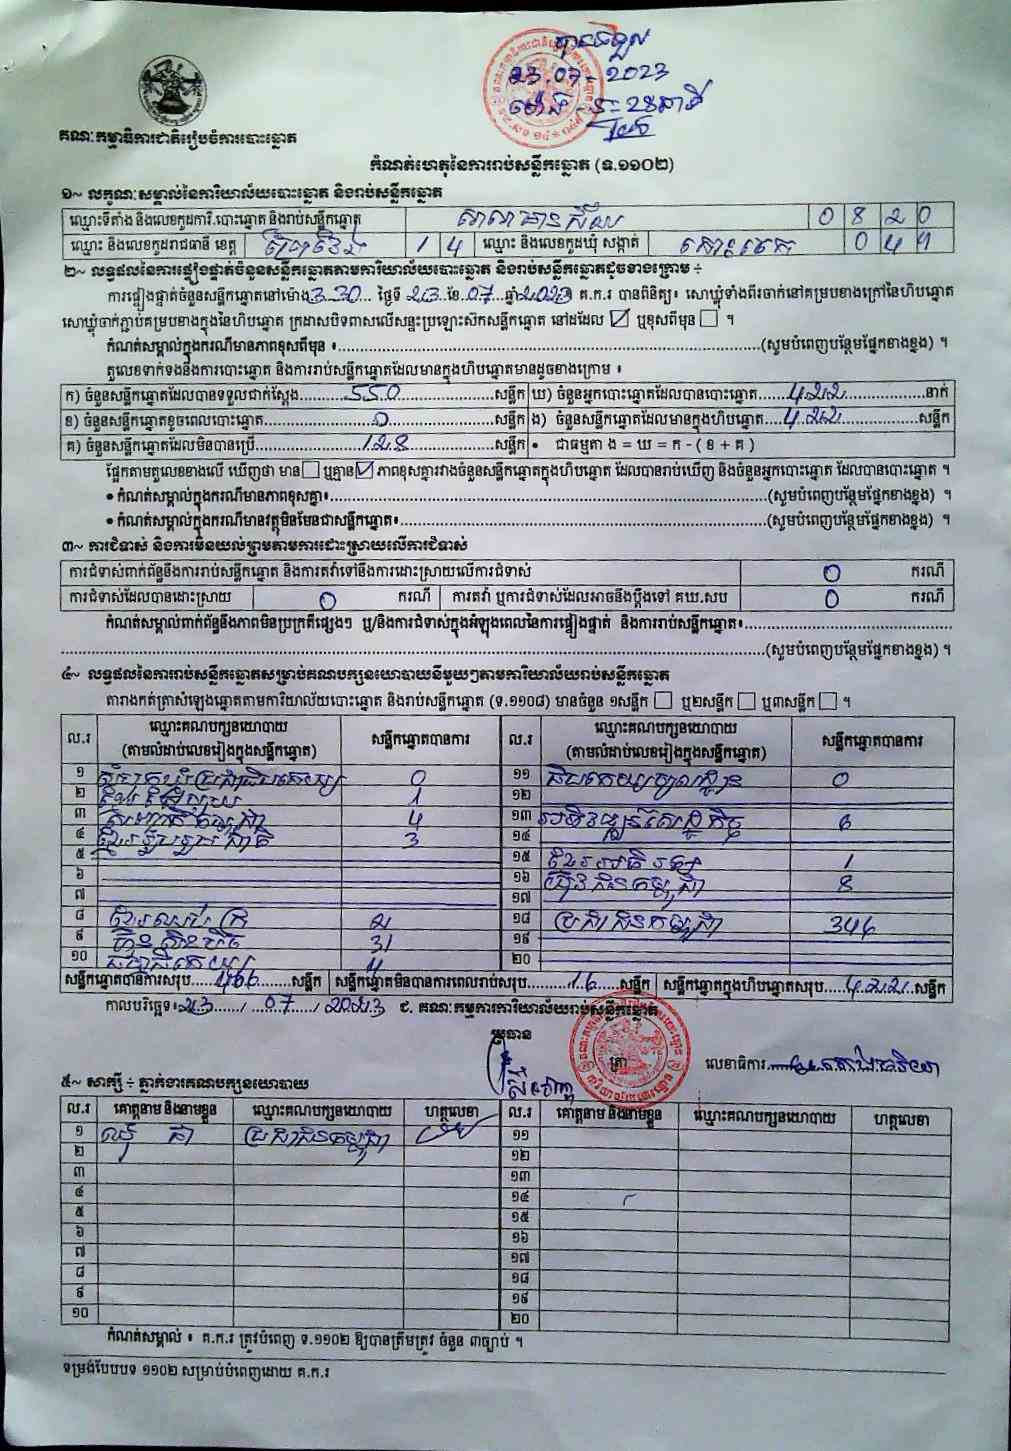 បានទទួល
23.07-2023
គណៈកម្មាធិការជាតិរៀបចំការបោះឆ្នោត
កំណត់ហេតុនៃការរាប់សន្លឹកឆ្នោត (ទ.១១០២)
១~ លក្ខណៈសម្គាល់នៃការិយាល័យបោះឆ្នោត និងរាប់សន្លឹកឆ្នោត
ឈ្មោះទីតាំង និងលេខកូដការិ.បោះឆ្នោត និងរាប់សន្លឹកឆ្នោត សាលាមានជ័យ 0 8 2 0
ឈ្មោះ និងលេខកូដរាជធានី ខេត្ត ព្រៃវែង 1 4 ឈ្មោះ និងលេខកូដឃុំ សង្កាត់ 0 4 9
២~ លទ្ធផលនៃការផ្ទៀងផ្ទាត់ចំនួនសន្លឹកឆ្នោតតាមការិយាល័យបោះឆ្នោត និងរាប់សន្លឹកឆ្នោតដូចខាងក្រោម ÷
ការផ្ទៀងផ្ទាត់ចំនួនសន្លឹកឆ្នោតនៅម៉ោង 3.30 ថ្ងៃទី 23 ខែ 07 ឆ្នាំ 2023 គ.ក.រ បានពិនិត្យ៖ សោឃ្លុំទាំងពីរចាក់នៅគម្របខាងក្រៅនៃហិបឆ្នោត
សោឃ្លុំចាក់ភ្ជាប់គម្របខាងក្នុងនៃហិបឆ្នោត ក្រដាសបិទពាសលើសន្ទះប្រឡោះស៊កសន្លឹកឆ្នោត នៅដដែល ☑ ឬខុសពីមុន ☐ ។
កំណត់សម្គាល់ក្នុងករណីមានភាពខុសពីមុន ៖ (សូមបំពេញបន្ថែមផ្នែកខាងខ្នង) ។
តួលេខទាក់ទងនឹងការបោះឆ្នោត និងការរាប់សន្លឹកឆ្នោតដែលមានក្នុងហិបឆ្នោតមានដូចខាងក្រោម ៖
ក) ចំនួនសន្លឹកឆ្នោតដែលបានទទួលជាក់ស្តែង 550 សន្លឹក ឃ) ចំនួនអ្នកបោះឆ្នោតដែលបានបោះឆ្នោត 422 នាក់
ខ) ចំនួនសន្លឹកឆ្នោតខូចពេលបោះឆ្នោត 0 សន្លឹក ង) ចំនួនសន្លឹកឆ្នោតដែលមានក្នុងហិបឆ្នោត 422 សន្លឹក
គ) ចំនួនសន្លឹកឆ្នោតដែលមិនបានប្រើ 128 សន្លឹក • ជាធម្មតា ង = ឃ = ក - ( ខ + គ )
ផ្អែកតាមតួលេខខាងលើ ឃើញថា មាន ☐ ឬគ្មាន ☑ ភាពខុសគ្នារវាងចំនួនសន្លឹកឆ្នោតក្នុងហិបឆ្នោត ដែលបានរាប់ឃើញ និងចំនួនអ្នកបោះឆ្នោត ដែលបានបោះឆ្នោត ។
• កំណត់សម្គាល់ក្នុងករណីមានភាពខុសគ្នា៖ (សូមបំពេញបន្ថែមផ្នែកខាងខ្នង) ។
• កំណត់សម្គាល់ក្នុងករណីមានវត្ថុមិនមែនជាសន្លឹកឆ្នោត៖ (សូមបំពេញបន្ថែមផ្នែកខាងខ្នង) ។
៣~ ការជំទាស់ និងការមិនយល់ព្រមតាមការដោះស្រាយលើការជំទាស់
ការជំទាស់ពាក់ព័ន្ធនឹងការរាប់សន្លឹកឆ្នោត និងការតវ៉ាទៅនឹងការដោះស្រាយលើការជំទាស់ 0 ករណី
ការជំទាស់ដែលបានដោះស្រាយ 0 ករណី ការតវ៉ា ឬការជំទាស់ដែលអាចនឹងប្តឹងទៅ គឃ.សប 0 ករណី
កំណត់សម្គាល់ពាក់ព័ន្ធនឹងភាពមិនប្រក្រតីផ្សេងៗ ឬ/និងការជំទាស់ក្នុងអំឡុងពេលនៃការផ្ទៀងផ្ទាត់ និងការរាប់សន្លឹកឆ្នោត៖
(សូមបំពេញបន្ថែមផ្នែកខាងខ្នង) ។
៤~ លទ្ធផលនៃការរាប់សន្លឹកឆ្នោតសម្រាប់គណបក្សនយោបាយនីមួយៗតាមការិយាល័យរាប់សន្លឹកឆ្នោត
តារាងកត់ត្រាសំឡេងឆ្នោតតាមការិយាល័យបោះឆ្នោត និងរាប់សន្លឹកឆ្នោត (ទ.១១០៨) មានចំនួន ១សន្លឹក ☐ ឬ២សន្លឹក ☐ ឬ៣សន្លឹក ☐ ។
ល.រ ឈ្មោះគណបក្សនយោបាយ (តាមលំដាប់លេខរៀងក្នុងសន្លឹកឆ្នោត) សន្លឹកឆ្នោតបានការ ល.រ ឈ្មោះគណបក្សនយោបាយ (តាមលំដាប់លេខរៀងក្នុងសន្លឹកឆ្នោត) សន្លឹកឆ្នោតបានការ
១ សំបុកឃ្មុំប្រជាធិបតេយ្យ 0 ១១ ធិបតេយ្យមូលដ្ឋាន 0
២ 1 ១២
៣ 4 ១៣ សេដ្ឋកិច្ច 6
៤ ខ្មែររួបរួមជាតិ 3 ១៤
៥ ១៥ 1
៦ ១៦ យុវជនកម្ពុជា 8
៧ ១៧
៨ ខ្មែរ 2 ១៨ ប្រជាជនកម្ពុជា 346
៩ ហ៊្វុនស៊ិនប៉ិច 31 ១៩
១០ 4 ២០
សន្លឹកឆ្នោតបានការសរុប 406 សន្លឹក សន្លឹកឆ្នោតមិនបានការពេលរាប់សរុប 16 សន្លឹក សន្លឹកឆ្នោតក្នុងហិបឆ្នោតសរុប 422 សន្លឹក
កាលបរិច្ឆេទ៖ 23 / 07 / 2023 ជ. គណៈកម្មការការិយាល័យរាប់សន្លឹកឆ្នោត
ប្រធាន
ត្រា លេខាធិការ
៥~ សាក្សី ÷ ភ្នាក់ងារគណបក្សនយោបាយ
ល.រ គោត្តនាម និងនាមខ្លួន ឈ្មោះគណបក្សនយោបាយ ហត្ថលេខា ល.រ គោត្តនាម និងនាមខ្លួន ឈ្មោះគណបក្សនយោបាយ ហត្ថលេខា
១ ប្រជាជនកម្ពុជា ១១
២ ១២
៣ ១៣
៤ ១៤
៥ ១៥
៦ ១៦
៧ ១៧
៨ ១៨
៩ ១៩
១០ ២០
កំណត់សម្គាល់ ៖ គ.ក.រ ត្រូវបំពេញ ទ.១១០២ ឱ្យបានត្រឹមត្រូវ ចំនួន ៣ច្បាប់ ។
ទម្រង់បែបបទ ១១០២ សម្រាប់បំពេញដោយ គ.ក.រ